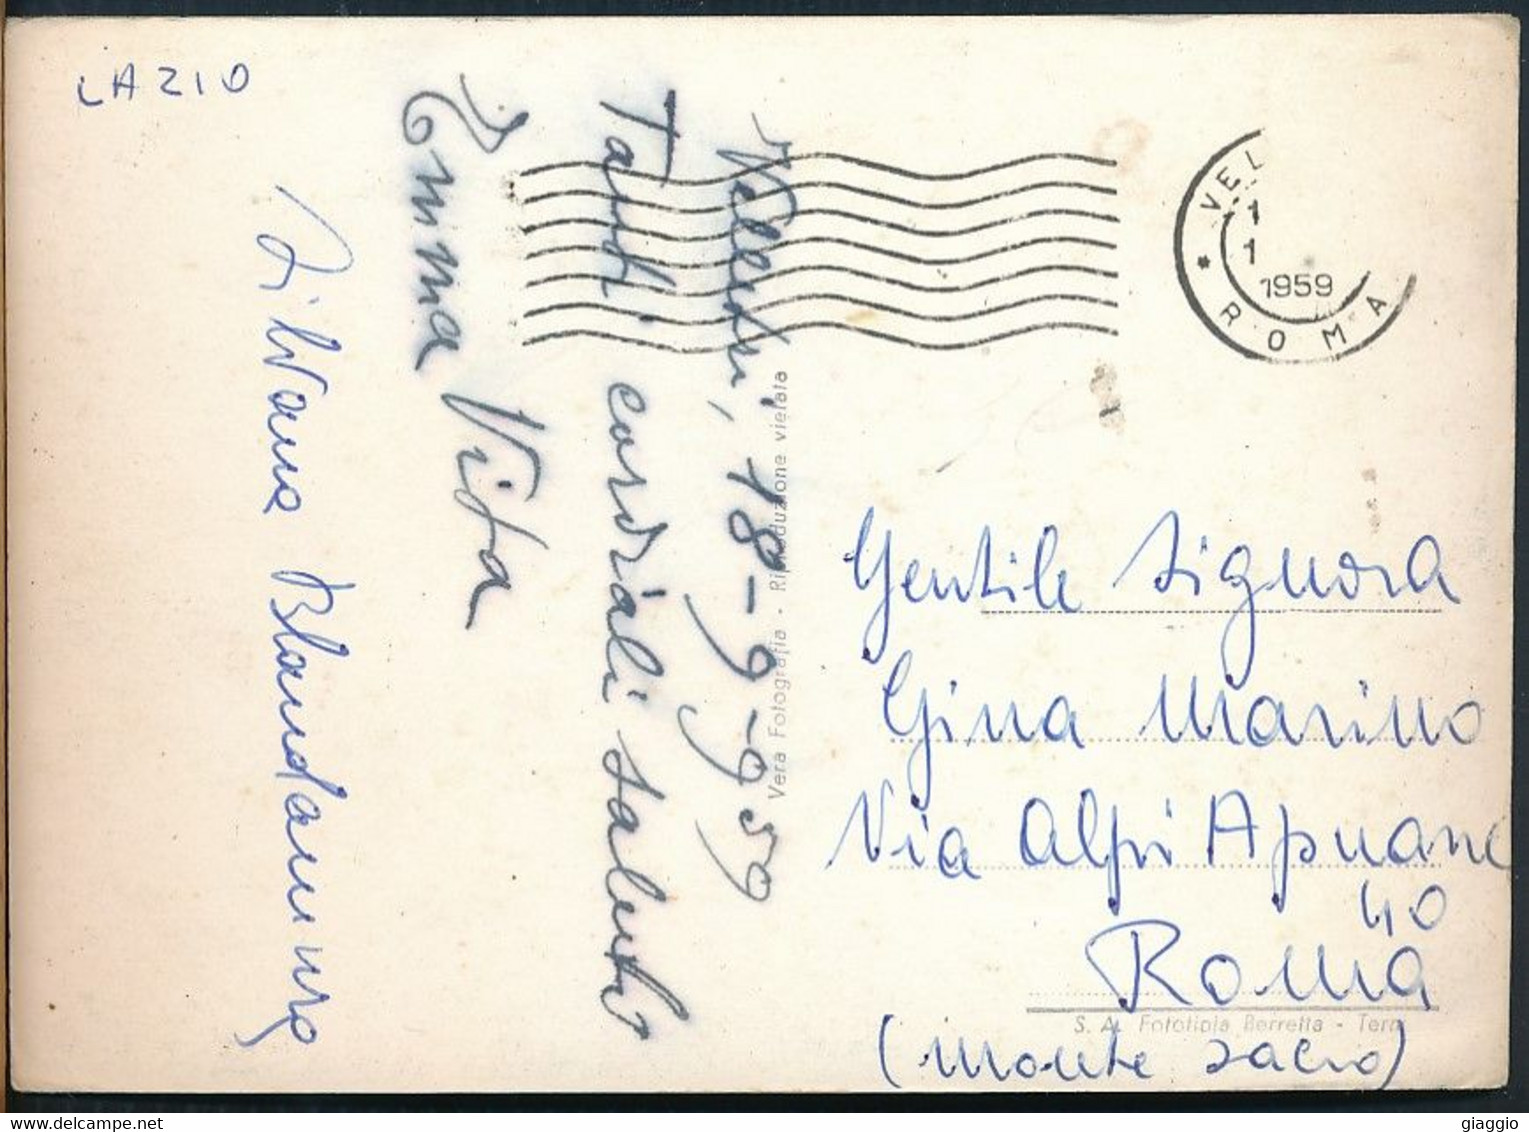 LAZIO
Velletri, 18-9-959
Tanti cordiali saluti
Emma Vita
Silvana
VEL
1
1
1959
* ROMA
Vera Fotografia - Riproduzione vietata
Gentile Signora
Gina Marino
Via Alpi Apuane
40
Roma
S. A. Fototipia Berretta - Terni
(Monte Sacro)
giaggio